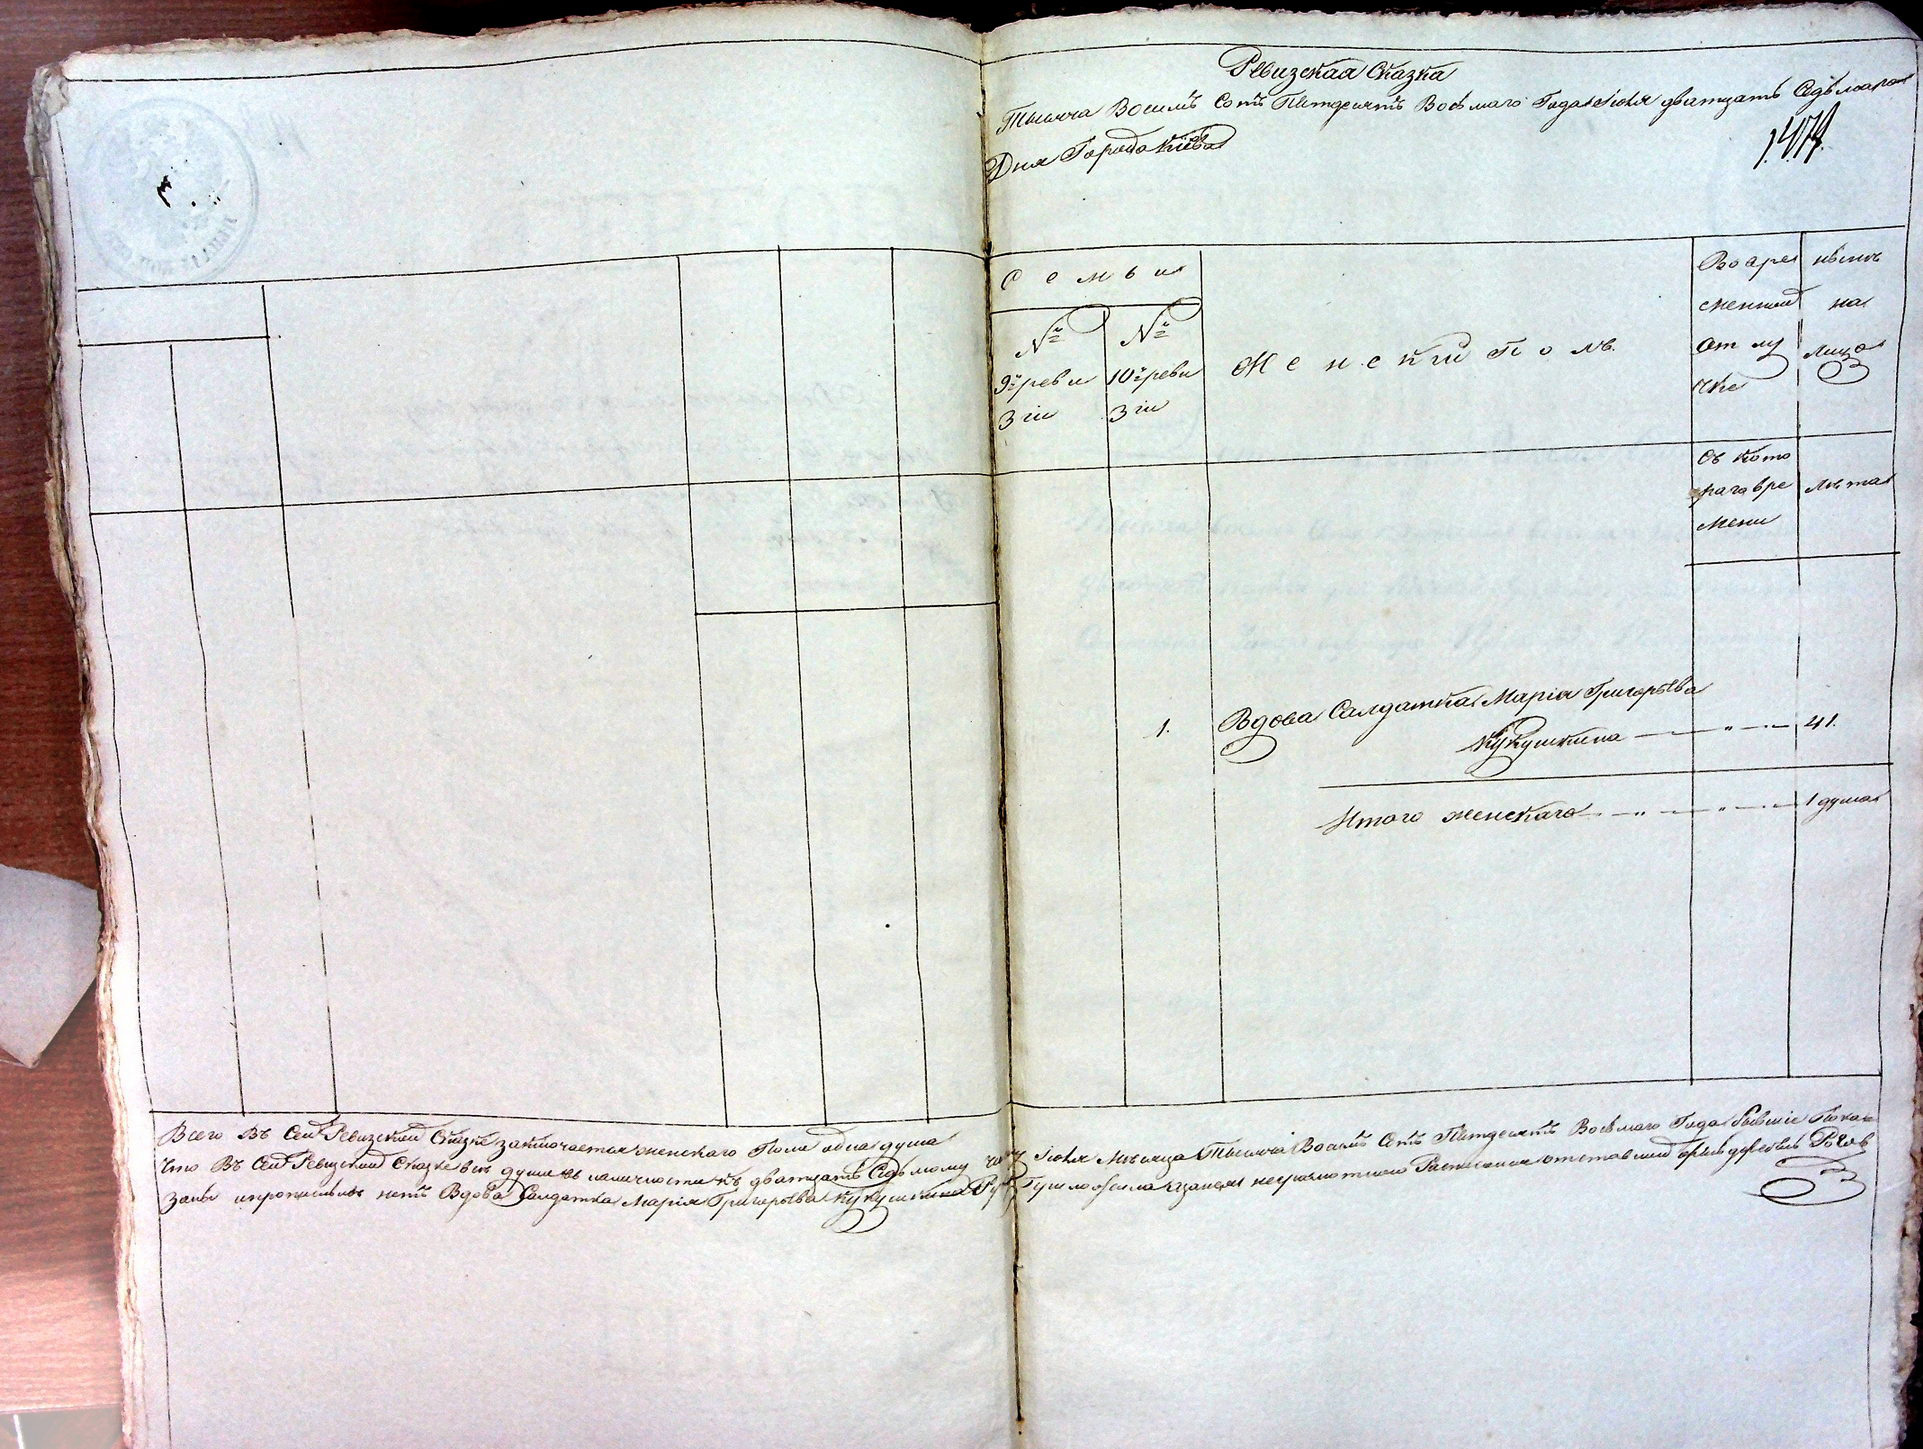 Ревизская Сказка
Тысяча Восимъ Сотъ Пятдесятъ Восьмаго Года Июля дватцать Седьмаго
Дня Города Кіева
Семьи
№ № Женскій Полъ.
9й реви 10й реви
зіи зіи
Во вре
менной
отлу
чке
нынѣ
на
лицо
Съ кото
раго вре
мени
лѣта
1. Вдова Салдатка Марія Григорьева
Кукушкина 41.
Итого женскаго 1 душа
Всего Въ Сей Ревизской Сказке заключается женскаго Пола одна душа
Что Въ Сей Ревизской Сказке все души въ наличности къ дватцать Седьмому числу Июля Мѣсяца Тысяча Восимъ Сотъ Пятдесятъ Восьмаго Года бывшіе Пока
заны и прописныхъ нетъ Вдова Салдатка Марія Григорьева Кукушкина